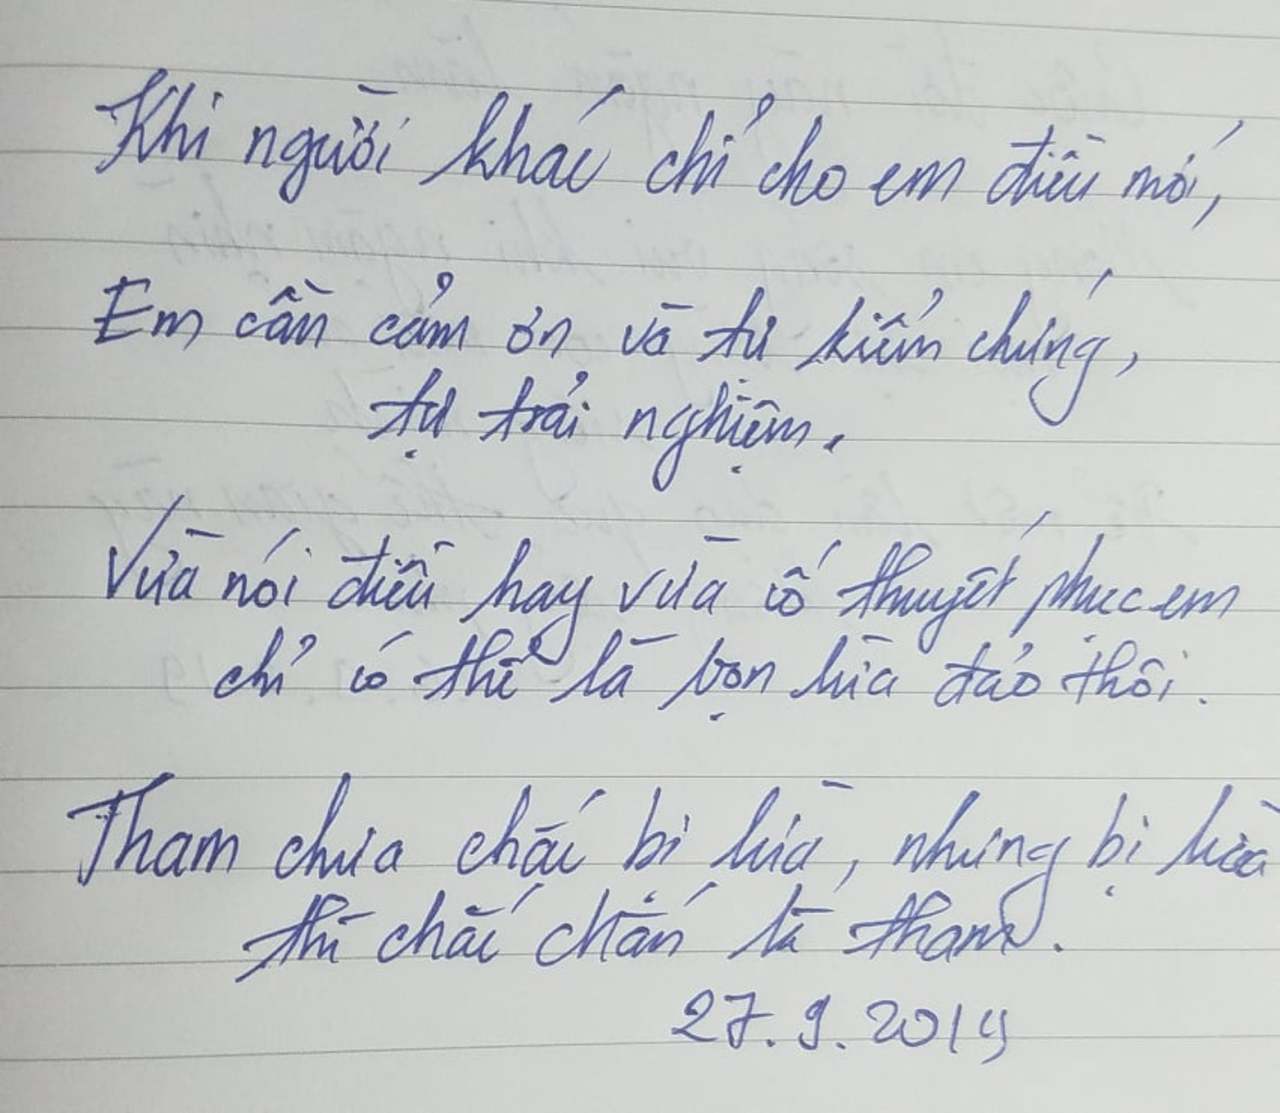 Khi người khác chỉ cho em điều mới,
Em cần cảm ơn và tự kiểm chứng,
tự trải nghiệm.
Vừa nói điều hay vừa cố thuyết phục em
chỉ có thể là bọn lừa đảo thôi.
Tham chưa chắc bị lừa, nhưng bị lừa
thì chắc chắn là tham.
27.9.2019